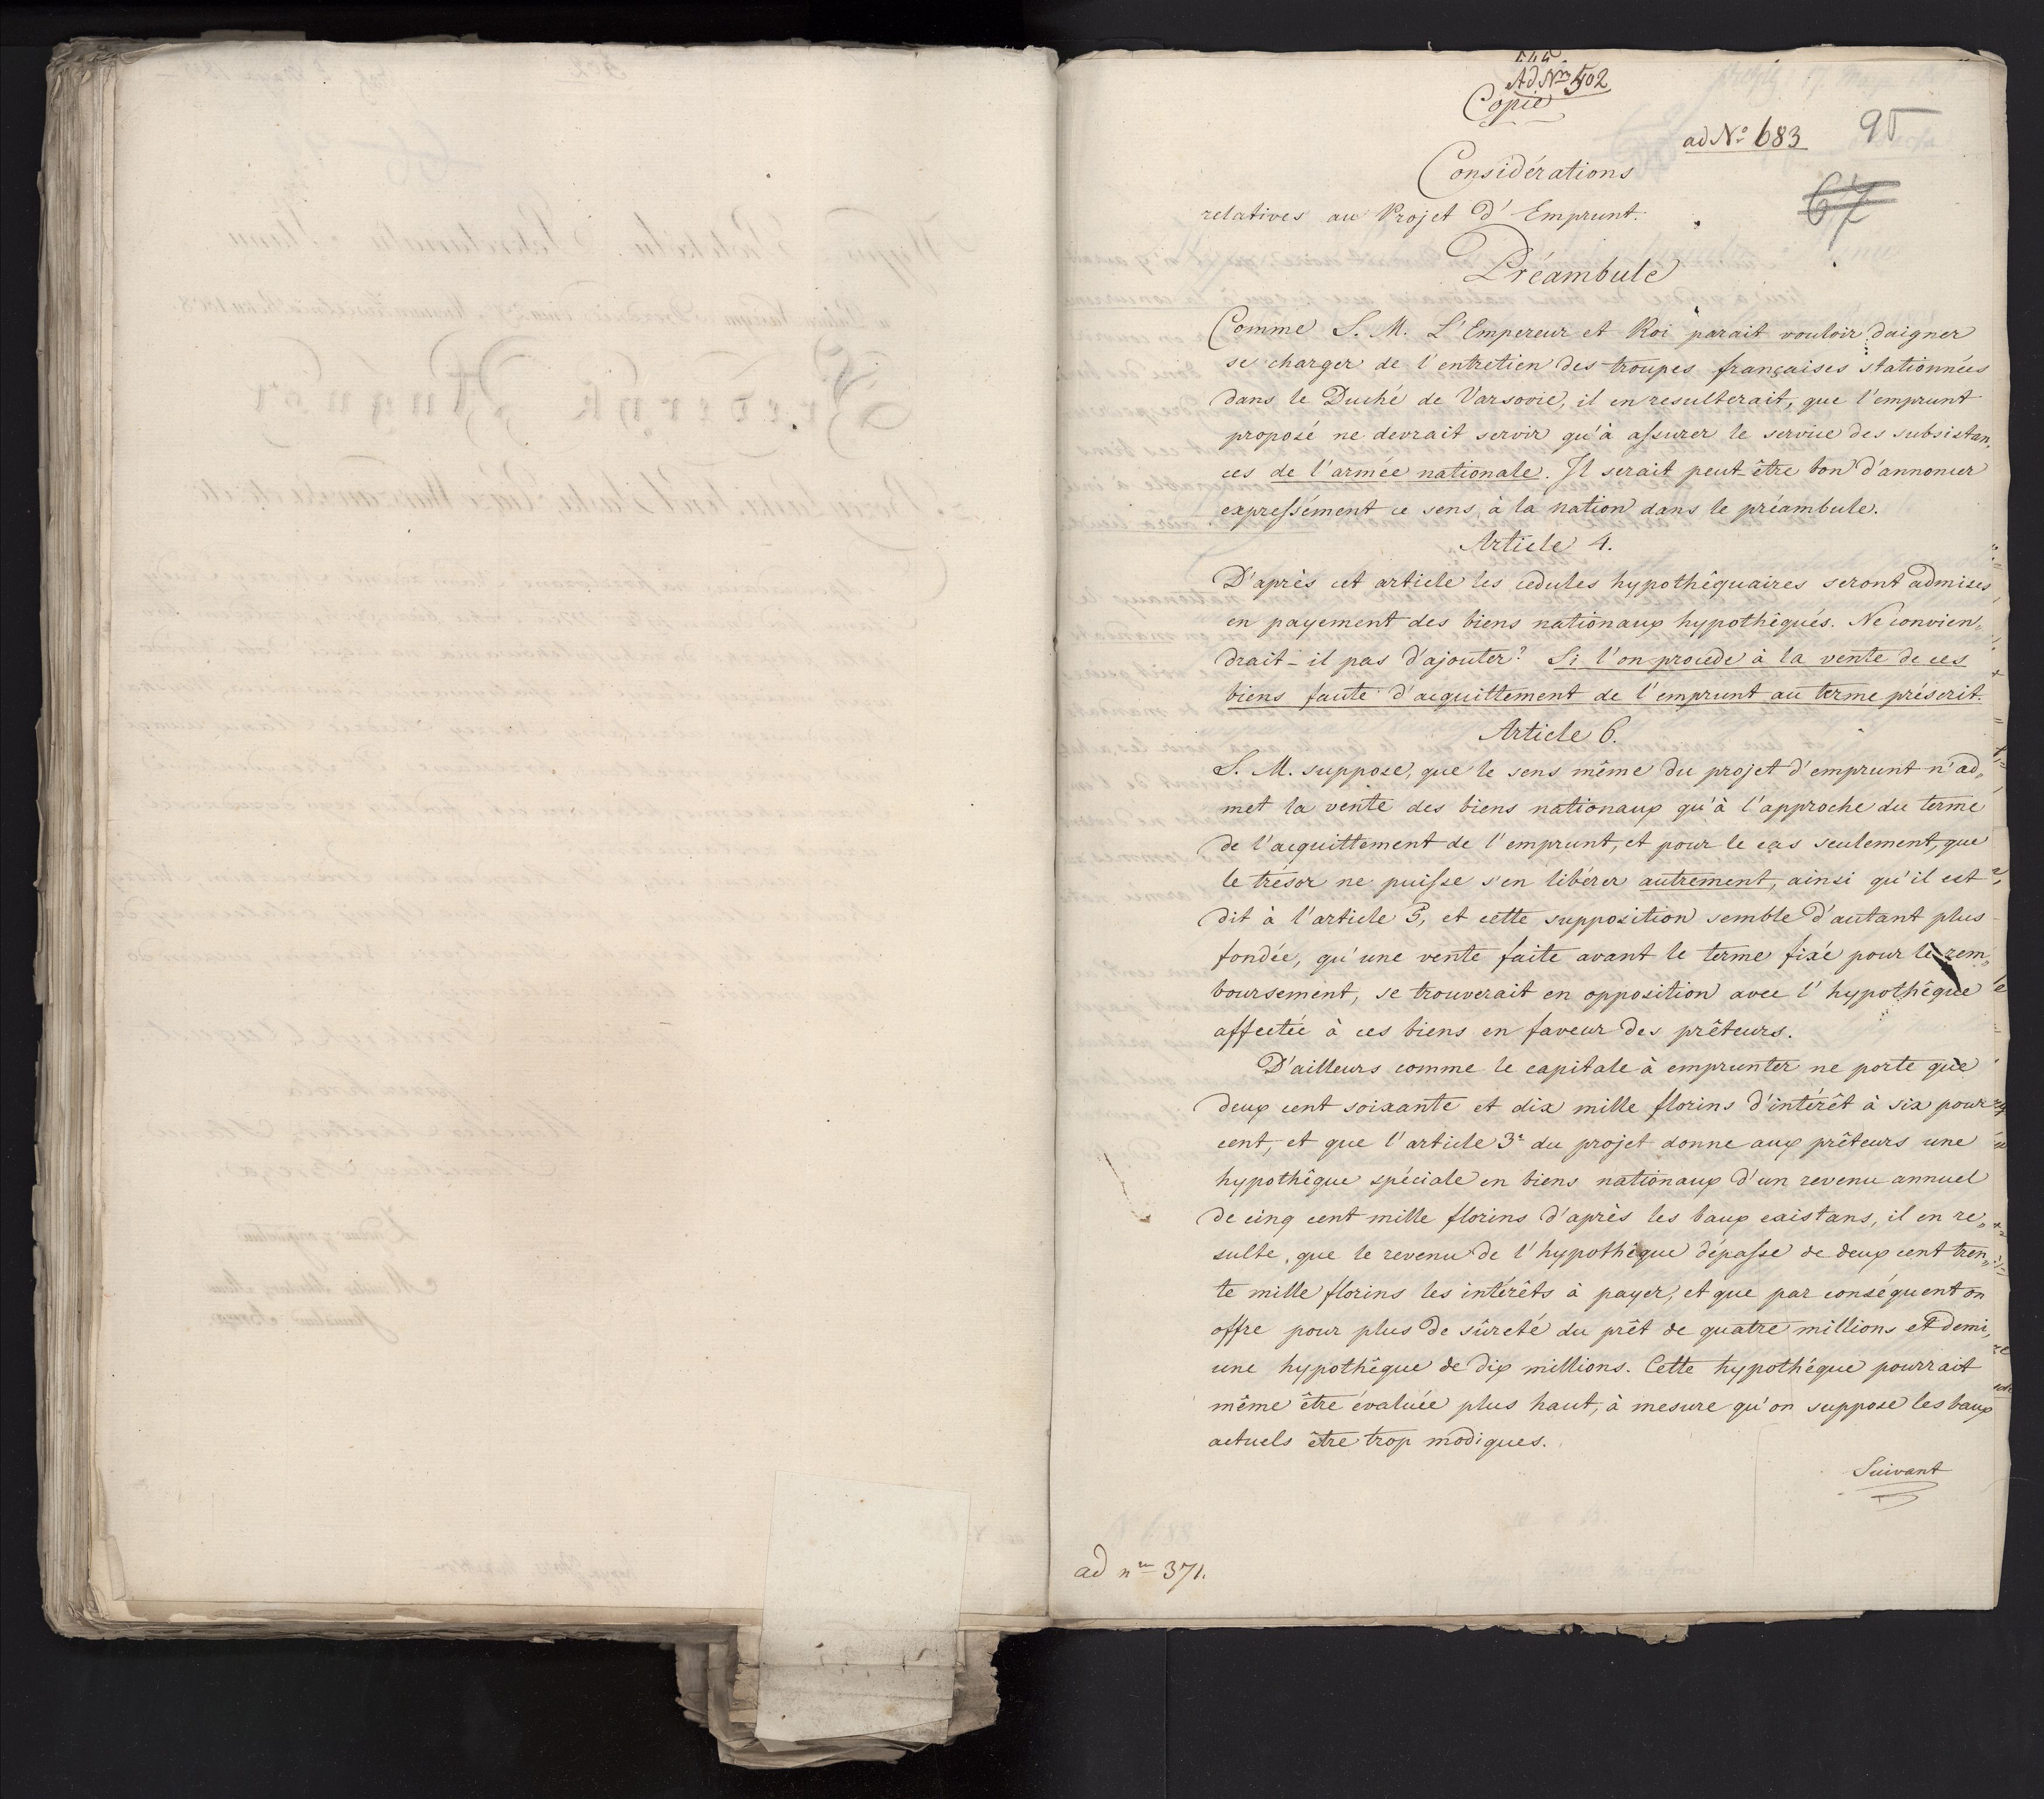 444.
Ad Nrm 502
Copie
ad No. 683
95
67
Considérations
relatives au Projet d'Emprunt.
Préambule
Comme S. M. L'Empereur et Roi parait vouloir daigner
se charger de l'entretien des troupes françaises stationnées
dans le Duché de Varsovie, il en resulterait, que l'emprunt
proposé ne devrait servir qu'à assurer le service des subsistan„
ces de l'armée nationale. Il serait peut-être bon d'annoncer
expressément ce sens, à la nation dans le préambule.
Article 4.
D'après cet article les cedules hypothêquaires seront admises
en payement des biens nationaux hypothêqués. Ne convien„
drait-il pas d'ajouter? Si l'on procede à la vente de ces
biens faute d'acquittement de l'emprunt au terme préscrit.
Article 6.
S. M. suppose, que le sens même du projet d'emprunt n'ad„
met la vente des biens nationaux qu'à l'approche du terme
de l'acquittement de l'emprunt, et pour le cas seulement, que
le trésor ne puisse s'en libérer autrement, ainsi qu'il est
dit à l'article 5, et cette supposition semble d'autant plus
fondée, qu'une vente faite avant le terme fixé pour le rem„
boursement, se trouverait en opposition avec l'hypothêque
affectée à ces biens en faveur des prêteurs.
D'ailleurs comme le capitale à emprunter ne porte que
deux cent soixante et dix mille florins d'intérêt à six pour
cent, et que l'article 3e du projet donne aux prêteurs une
hypothêque spéciale en biens nationaux d'un revenu annuel
de cinq cent mille florins d'après les baux existans, il en re„
sulte, que le revenu de l'hypothêque dépasse de deux cent tren„
te mille florins les intérêts à payer, et que par conséquent on
offre pour plus de sûreté du prêt de quatre millions et demi,
une hypothêque de dix millions. Cette hypothêque pourrait
même être évaluée plus haut, à mesure qu'on suppose les baux
actuels être trop modiques.
Suivant
ad nru 371.